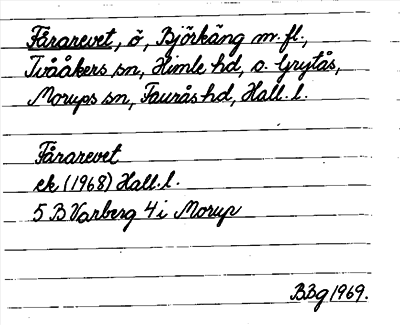 Fårarevet, ö, Björkäng m. fl.,
Tvååkers sn, Himle hd, o. Grytås,
Morups sn, Faurås hd, Hall. l.
Fårarevet
ek (1968) Hall. l.
5 B Varberg 4 i Morup
BBg 1969.